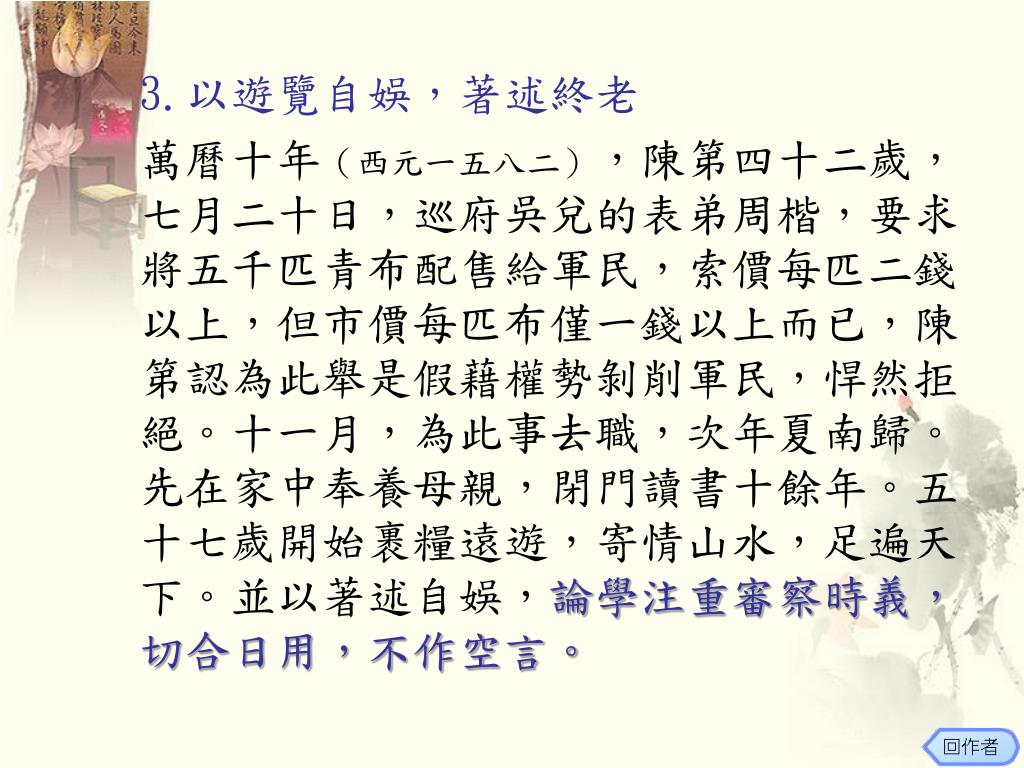 3.以遊覽自娛，著述終老
萬曆十年（西元一五八二），陳第四十二歲，
七月二十日，巡府吳兌的表弟周楷，要求
將五千匹青布配售給軍民，索價每匹二錢
以上，但市價每匹布僅一錢以上而已，陳
第認為此舉是假藉權勢剝削軍民，悍然拒
絕。十一月，為此事去職，次年夏南歸。
先在家中奉養母親，閉門讀書十餘年。五
十七歲開始裹糧遠遊，寄情山水，足遍天
下。並以著述自娛，論學注重審察時義，
切合日用，不作空言。
回作者